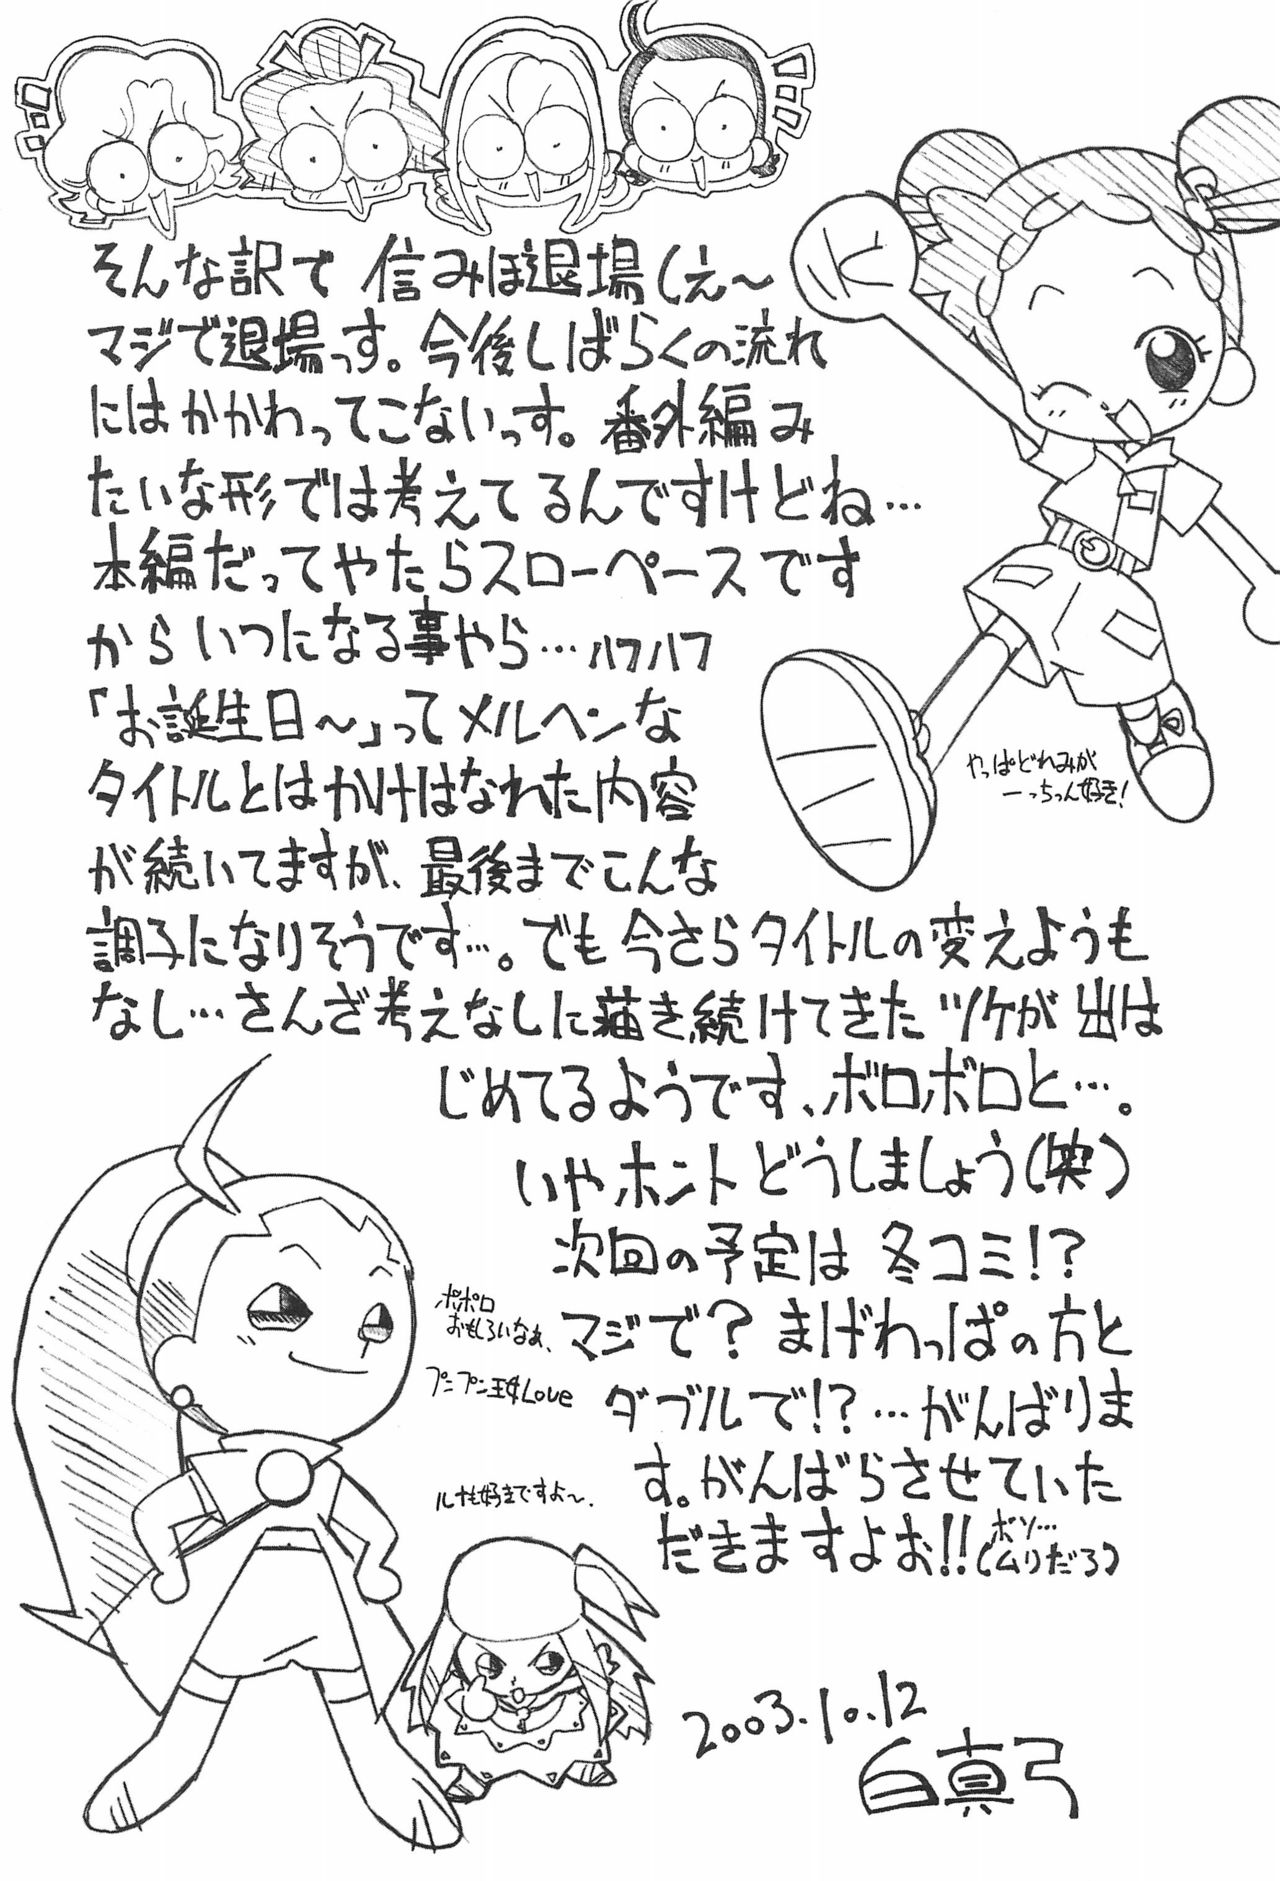 そんな訳で 信みほ退場(え〜
マジで退場っす。今後しばらくの流れ
にはかかわってこないっす。番外編み
たいな形では考えてるんですけどね…
本編だってやたらスローペースです
からいつになる事やら…ハフハフ
「お誕生日〜」ってメルヘンな
タイトルとはかけはなれた内容
が続いてますが、最後までこんな
調子になりそうです…。でも今さらタイトルの変えようも
なし…さんざ考えなしに描き続けてきたツケが出は
じめてるようです、ボロボロと…。
いやホントどうしましょう(笑)
次回の予定は 冬コミ!?
マジで? まげわっぱの方と
ダブルで!?…がんばりま
す。がんばらさせていた
だきますよぉ!!(ボソ…ムリだろ)
やっぱどれみが
一っちゃん好き!
ポポロ
おもしろいなぁ、
プニプン王女Love
ルナも好きですよ〜、
2003.10.12
白真弓